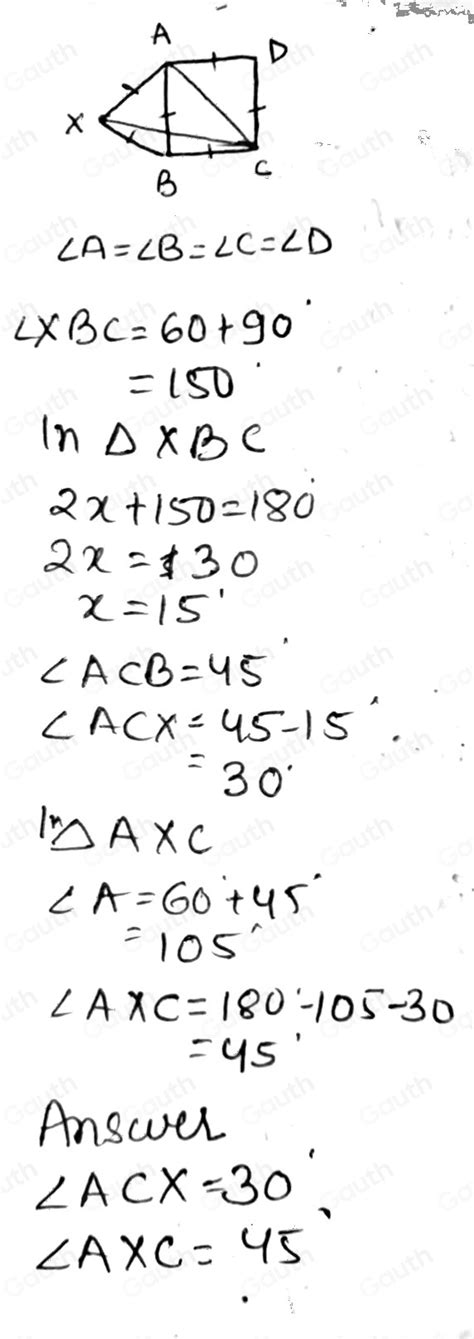 A
D
X
B
C
∠A=∠B=∠C=∠D
∠XBC=60+90°
=150°
In △XBC
2x+150=180°
2x=30
x=15°
∠ACB=45°
∠ACX=45-15°
=30°
In △AXC
∠A=60°+45°
=105°
∠AXC=180°-105-30
=45°
Answer
∠ACX=30°,
∠AXC=45°
Gauth